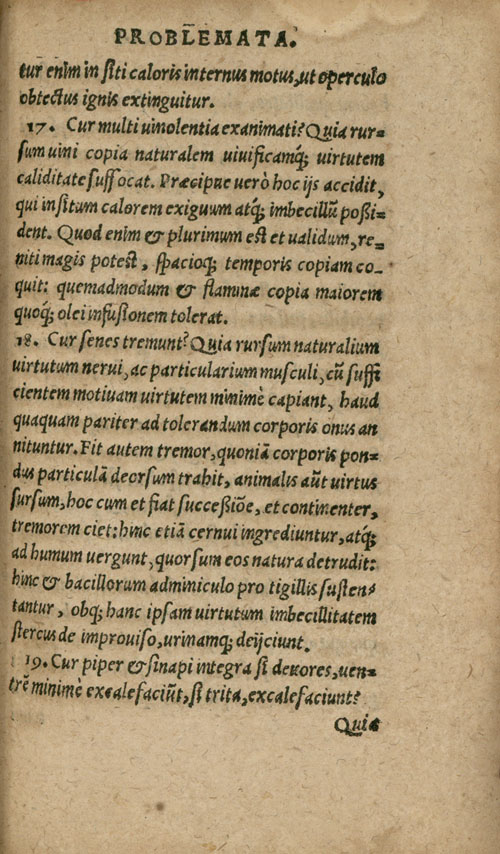 PROBLEMATA.
tur enim in siti caloris internus motus, ut operculo
obtectus ignis extinguitur.
17. Cur multi uinolentia exanimati? Quia rur=
sum uini copia naturalem uiuificamq; uirtutem
caliditate suffocat. Præcipue uerò hoc ijs accidit,
qui insitum calorem exiguum atq; imbecillū possi=
dent. Quod enim & plurimum est et ualidum, re=
niti magis potest, spacioq; temporis copiam co=
quit: quemadmodum & flammæ copia maiorem
quoq; olei infusionem tolerat.
18. Cur senes tremunt? Quia rursum naturalium
uirtutum nerui, ac particularium musculi, cū suffi
cientem motiuam uirtutem minimè capiant, haud
quaquam pariter ad tolerandum corporis onus an
nituntur. Fit autem tremor, quoniā corporis pon=
dus particulā deorsum trahit, animalis aūt uirtus
sursum, hoc cum et fiat successiōe, et continenter,
tremorem ciet: hinc etiā cernui ingrediuntur, atq;
ad humum uergunt, quorsum eos natura detrudit:
hinc & bacillorum adminiculo pro tigillis susten=
tantur, obq; hanc ipsam uirtutum imbecillitatem
stercus de improuiso, urinamq; deijciunt.
19. Cur piper & sinapi integra si deuores, uen=
trē minimè excalefaciūt, si trita, excalefaciunt?
Quia